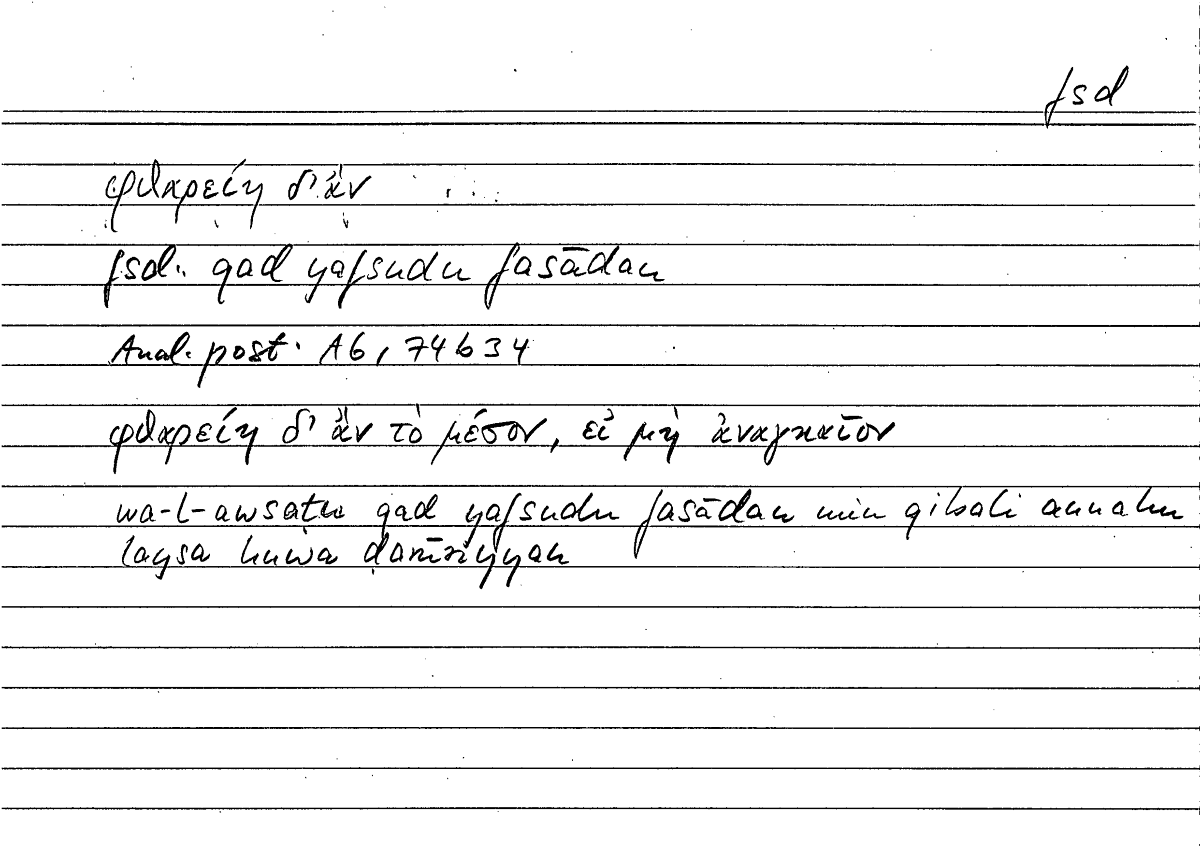 fsd
φθαρείη δ' ἄν
fsd: qad yafsudu fasādan
Anal. post. A6, 74b34
φθαρείη δ' ἄν τὸ μέσον, εἰ μὴ ἀναγκαῖον
wa-l-awsaṭu qad yafsudu fasādan min qibali annahu
laysa huwa ḍarūriyyan